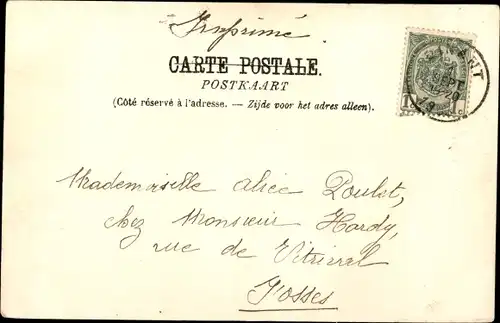 Imprimé
CARTE POSTALE.
POSTKAART
(Côté réservé à l'adresse. — Zijde voor het adres alleen).
DINANT
SEPT
Mademoiselle Alice Poulet,
chez Monsieur Hardy,
rue de Vitrival
Fosses